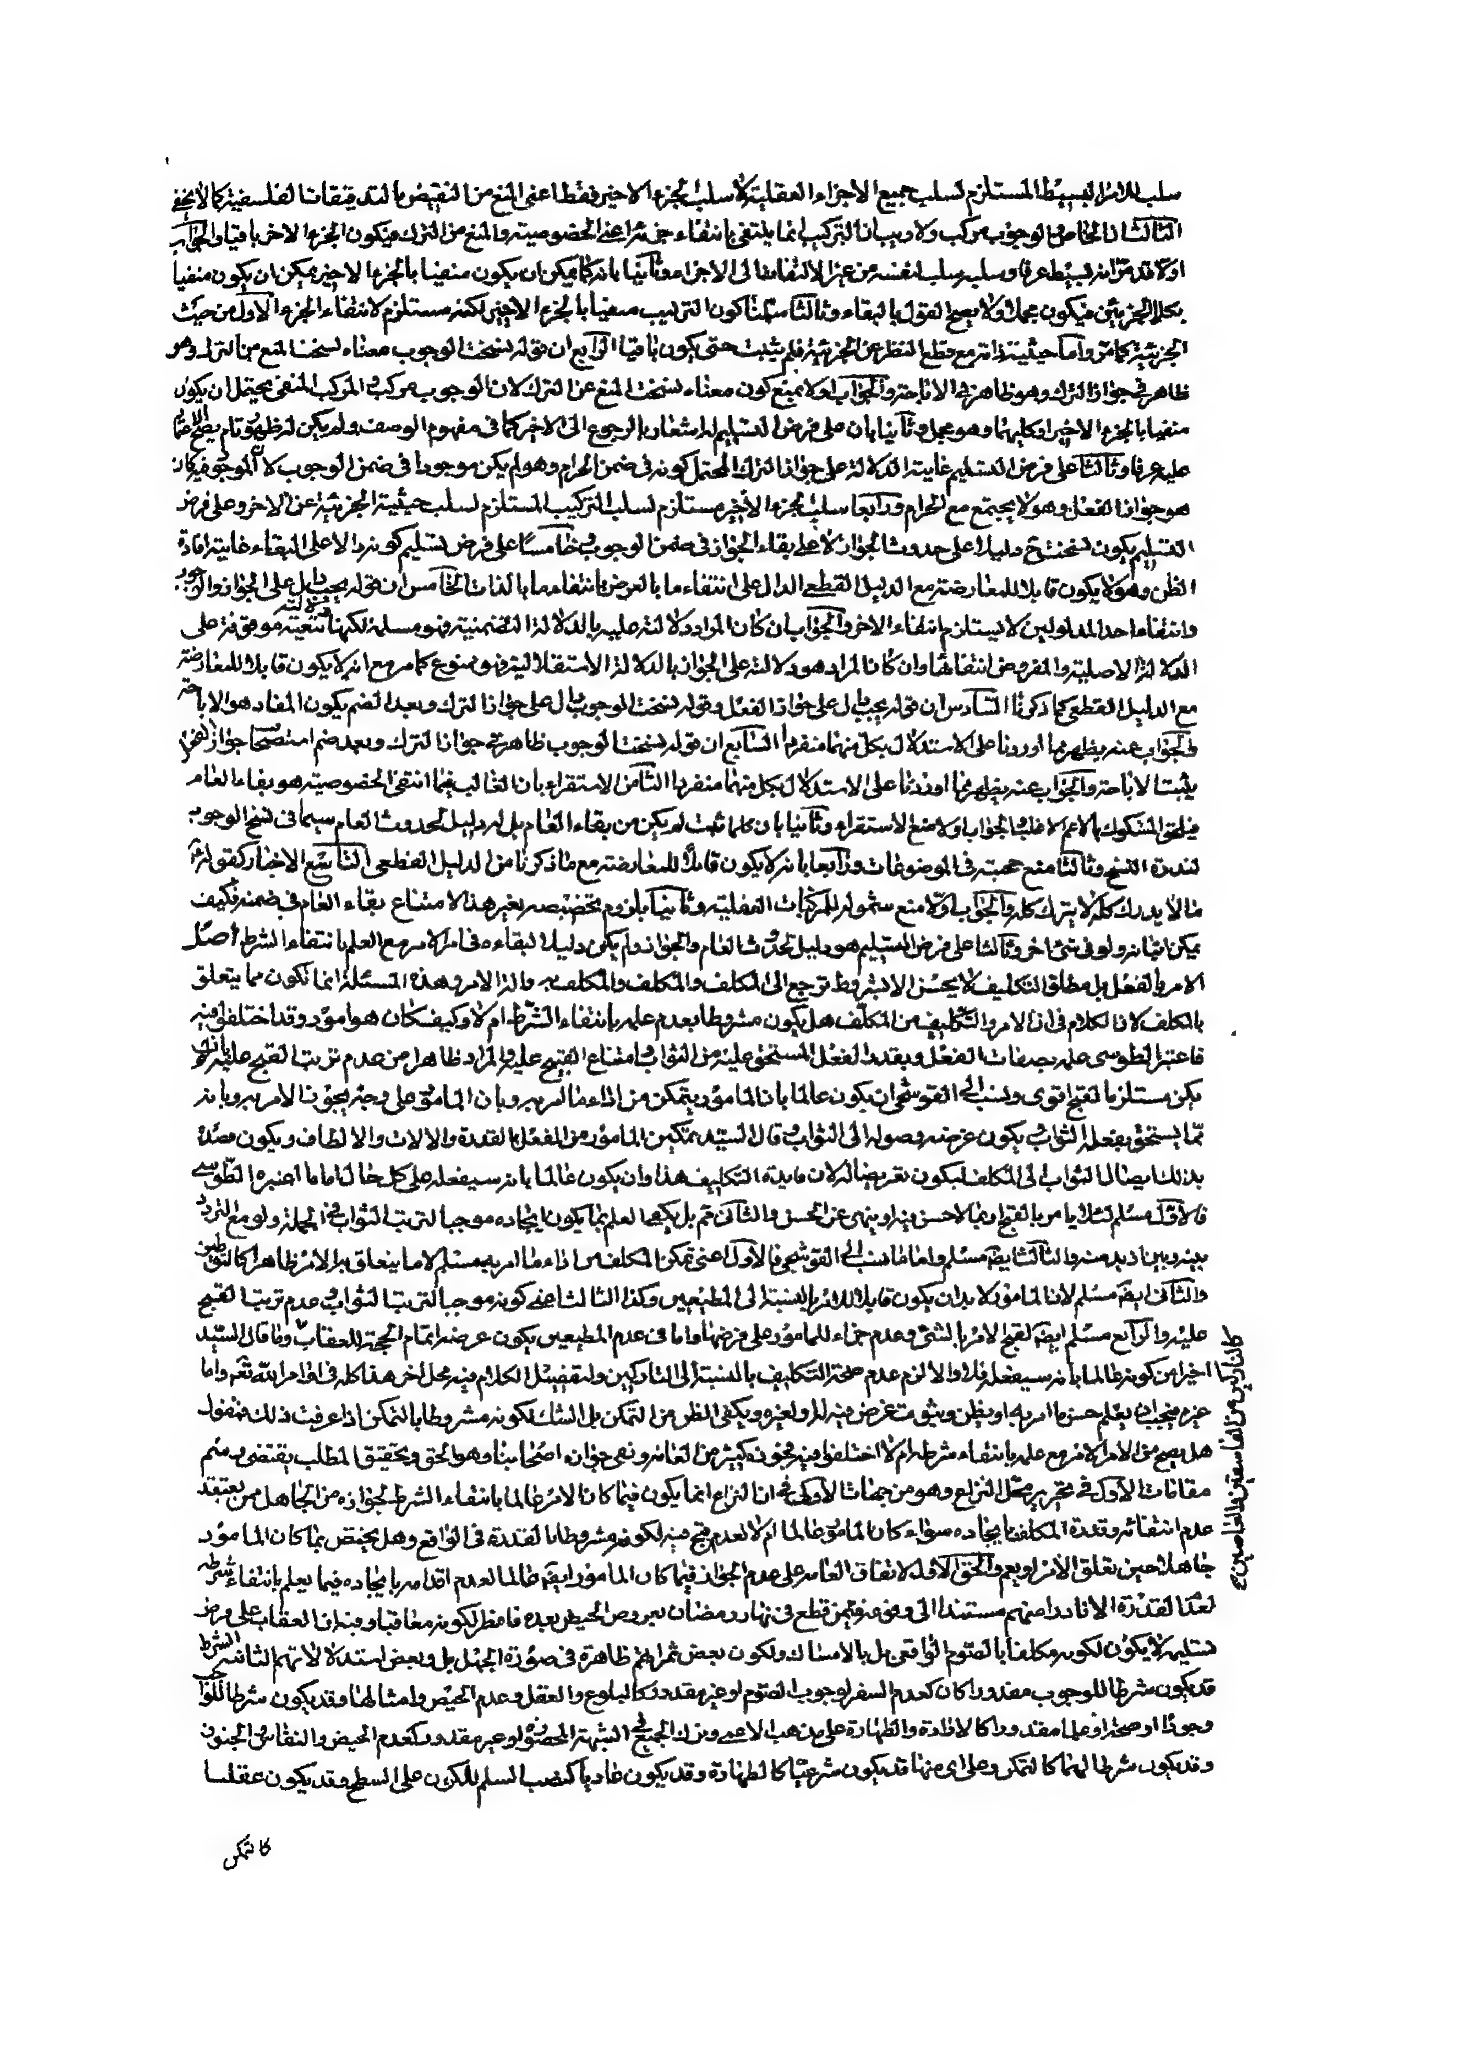 سلب للامر البسيط المستلزم لسلب جميع الاجزاء العقلية لا سلب الجزء الاخير فقط اعنى المنع من النقيض بالتدقيقات الفلسفية كما لا يخفى
الثالث ان الخاص والوجوب مركب ولا ريب ان التركيب انما ينتفى بانتفاء جزئه اعنى الخصوصية والمنع من الترك فيكون الجزء الاخر باقيا والجواب
اولا قد مر انه بسيط عرفا وسلبه سلب لنفسه من غير الالتفات الى الاجزاء وثانيا بانه كما يمكن ان يكون منفيا بالجزء الاخير يمكن ان يكون منفيا
بكلا الجزئين فيكون مجملا ولا يصح القول بالبقاء وثالثا سلمنا كون التركيب منفيا بالجزء الاخير لكنه مستلزم لانتفاء الجزء الاول من حيث
الجزئية كما مر واما حيثية ذاته مع قطع النظر عن الجزئية فلم يثبت حتى يكون باقيا الرابع ان قوله نسخت الوجوب معناه نسخت المنع من الترك وهو
ظاهر فى جواز الترك وهو ظاهر فى الاباحة والجواب اولا بمنع كون معناه نسخت المنع عن الترك لان الوجوب مركب والمركب المنفى يحتمل ان يكون
منفيا بالجزء الاخير او كليهما وهو مجمل وثانيا بان على فرض التسليم له اشعار بالرجوع الى الاخير كما فى مفهوم الوصف ولم يكن له ظهور تام يصح الاعتماد
عليه عرفا وثالثا على فرض التسليم غاية الدلالة على جواز الترك المحتمل كونه فى ضمن الحرام وهو لم يكن موجودا فى ضمن الوجوب لان الموجود فيه كان
هو جواز الفعل وهو لا يجتمع مع الحرام ورابعا سلب الجزء الاخير مستلزم لسلب التركيب المستلزم لسلب حيثية الجزئية عن الاخر وعلى فرض
التسليم يكون نسخت ح دليلا على حدوث الجواز لا على بقاء الجواز فى ضمن الوجوب وخامسا على فرض تسليم كونه دالا على البقاء غايته افادة
الظن وهو لا يكون قابلا للمعارضة مع الدليل القطعى الدال على انتفاء ما بالعرض بانتفاء ما بالذات الخامس ان قوله يجب يدل على الجواز والوجوب
وانتفاء احد المدلولين لا يستلزم انتفاء الاخر والجواب ان كان المراد دلالته عليه بالدلالة التضمنية فهو مسلمة لكنها دلالة تبعية موقوفة على
الدلالة الاصلية والمفروض انتفائها وان كان المراد هو دلالته على الجواز بالدلالة الاستقلالية فهو ممنوع كما مر مع انه لا يكون قابلا للمعارضة
مع الدليل القطعى كما ذكرنا السادس ان قوله يجب يدل على جواز الفعل وقوله نسخت الوجوب يدل على جواز الترك وبعد الضم يكون المفاد هو الاباحة
والجواب عنه يظهر مما اوردنا على الاستدلال بكل منهما منفردا السابع ان قوله نسخت الوجوب ظاهر فى جواز الترك وبعد ضم استصحاب جواز الفعل
يثبت الاباحة والجواب عنه يظهر مما اوردنا على الاستدلال بكل منهما منفردا الثامن الاستقراء بان الغالب فيما انتفى الخصوصية هو بقاء العام
فيلحق المشكوك بالاعم الاغلب والجواب اولا منع الاستقراء وثانيا بان كلما ثبت لم يكن من بقاء العام بل له دليل لحدوث العام سيما فى نسخ الوجوب
لندرة النسخ وثالثا منع حجيته فى الموضوعات ورابعا بانه لا يكون قابلا للمعارضة مع ما ذكرنا من الدليل القطعى التاسع الاخبار كقوله
ما لا يدرك كله لا يترك كله والجواب اولا منع شموله للمركبات العقلية وثانيا بلزوم تخصيصه بغير هذا لامتناع بقاء العام فى ضمنه فكيف
يمكن اتيانه ولو فى شئ اخر وثالثا على فرض التسليم هو دليل لحدوث العام والجواز ولم يكن دليلا لبقاءه فى امر الامر مع العلم بانتفاء الشرط اصل
الامر بالفعل بل مطلق التكليف لا يحسن الا بشروط ترجع الى المكلف والمكلف والمكلف به والى الامر وهذه المسئلة انما تكون مما يتعلق
بالمكلف لان الكلام فى ان الامر والتكليف من المكلف هل يكون مشروطا بعدم علمه بانتفاء الشرط ام لا وكيف كان هو امور وقد اختلف فيه
فاعتبر الطوسى علمه بصفات الفعل وبقدر الفعل المستحق عليه من الثواب وامتناع القبيح عليه والمراد ظاهرا من عدم ترتب القبيح عليه
يكن مستلزما لقبح اقوى ونسب الى القوشجى ان يكون عالما بان المامور يتمكن من اداء ما امر به وبان المامور على وجه يجوز الامر به وبانه
مما يستحق بفعله الثواب ويكون غرضه وصوله الى الثواب وقال السيد يتمكين المامور من الفعل بالقدرة والالات والالطاف ويكون قصده
بذلك ايصال الثواب الى المكلف ليكون تعريضا له لان فايدة التكليف هذا وان يكون عالما بانه سيفعله على كل حال اما ما اعتبره الطوسى
فالاول مسلم لئلا يامر بالقبيح او بما لا حسن فيه او ينهى عن الحسن والثانى ثم بل يكفى العلم بما يكون ايجاده موجبا لترتب الثواب فى الجملة ولو مع التردد
بينه وبين ازيد منه والثالث ايضا مسلم واما ما نسب الى القوشجى فالاول اعنى تمكن المكلف من اداء ما امر به مسلم لا ما يتعلق به الامر ظاهرا كالتوطين
والثانى ايضا مسلم لان المامور لا بد ان يكون قابلا للامر بالنسبة الى المطيعين وكذا الثالث اعنى كونه موجبا لترتب الثواب وعدم ترتب القبيح
عليه والرابع مسلم ايضا لقبح الامر بالشئ وعدم جزاء للمامور على فرضها واما فى عدم المطيعين يكون غرضه اتمام الحجة للعقاب وما قال السيد
اخيرا من كونه عالما بانه سيفعله فلا والا لزم عدم صحة التكليف بالنسبة الى التاركين ولتفصيل الكلام فيه محل اخر هذا كله فى اوامر الله تعالى واما
غيره فيجب ان يعلم حسن ما امر به او يظن وبثبوت غرض فيه له او لغيره ويكفى الظن من التمكن بل الشك لكونه مشروطا بالتمكن اذا عرفت ذلك فنقول
هل يصح من الامر الامر مع علمه بانتفاء شرطه ام لا اختلفوا فيه فجوزه كثير من العامة ونفى جوازه اصحابنا وهو الحق وتحقيق المطلب يقتضى رسم
مقامات الاول فى تحرير محل النزاع وهو من جهات الاولى فى ان النزاع انما يكون فيما كان الامر عالما بانتفاء الشرط لجوازه من الجاهل من يعتقد
عدم انتفائه وقدرة المكلف بايجاده سواء كان المامور عالما ام لا لعدم قبح فيه لكونه مشروطا بالقدرة فى الواقع وهل يختص بما كان المامور
جاهلا حين تعلق الامر او يعم والحق الاول لاتفاق العامة على عدم الجواز فيما كان المامور ايضا عالما لعدم اقدامه بايجاده فيما يعلم بانتفاء شرطه
لعدم القدرة الا نادرا منهم مستندا الى وقوعه فيمن قطع فى نهار رمضان بعروض الحيض بعده فافطر لكونه معاقبا وفيه ان العقاب على فرض
تسليمه لا يكون لكونه مكلفا بالصوم الواقعى بل بالامساك ولكون بعض ثمراتهم ظاهرة فى صورة الجهل بل وبعض استدلالاتهم الثانية الشرط
قد يكون شرطا للوجوب مقدورا كان كعدم السفر لوجوب الصوم او غير مقدور كالبلوغ والعقل وعدم الحيض وامثالها وقد يكون شرطا للواجب
وجودا او صحة او علما مقدورا كالارادة والطهارة على مذهب الاعمى وترك الجميع فى الشبهة المحصورة او غير مقدور كعدم الحيض والنفاس والجنون
وقد يكون شرطا لهما كالتمكن وعلى اى منها قد يكون شرعيا كالطهارة وقد يكون عاديا كنصب السلم للكون على السطح وقد يكون عقليا
كالتمكن
كالتاركين من الفاسقين والعاصين صح